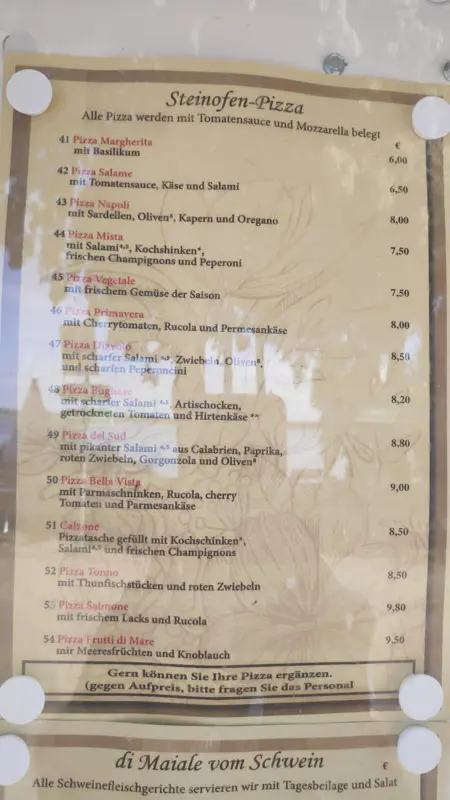 Steinofen-Pizza
Alle Pizza werden mit Tomatensauce und Mozzarella belegt
€
41 Pizza Margherita
mit Basilikum 6,00
42 Pizza Salame
mit Tomatensauce, Käse und Salami 6,50
43 Pizza Napoli
mit Sardellen, Oliven⁸, Kapern und Oregano 8,00
44 Pizza Mista
mit Salami⁴,⁵, Kochshinken⁴, 7,50
frischen Champignons und Peperoni
45 Pizza Vegetale
mit frischem Gemüse der Saison 7,50
46 Pizza Primavera
mit Cherrytomaten, Rucola und Permesankäse 8,00
47 Pizza Diavolo
mit scharfer Salami ⁴,⁵, Zwiebeln, Oliven⁸, 8,50
und scharfen Peperoncini
48 Pizza Pugliese
mit scharfer Salami ⁴,⁵, Artischocken, 8,20
getrockneten Tomaten und Hirtenkäse
49 Pizza del Sud
mit pikanter Salami ⁴,⁵ aus Calabrien, Paprika, 8,80
roten Zwiebeln, Gorgonzola und Oliven⁸
50 Pizza Bella Vista
mit Parmaschninken, Rucola, cherry 9,00
Tomaten und Parmesankäse
51 Calzone
Pizzatasche gefüllt mit Kochschinken⁴, 8,50
Salami⁴,⁵ und frischen Champignons
52 Pizza Tonno
mit Thunfischstücken und roten Zwiebeln 8,50
53 Pizza Salmone
mit frischem Lacks und Rucola 9,80
54 Pizza Frutti di Mare
mir Meeresfrüchten und Knoblauch 9,50
Gern können Sie Ihre Pizza ergänzen.
(gegen Aufpreis, bitte fragen Sie das Personal
di Maiale vom Schwein
€
Alle Schweinefleischgerichte servieren wir mit Tagesbeilage und Salat